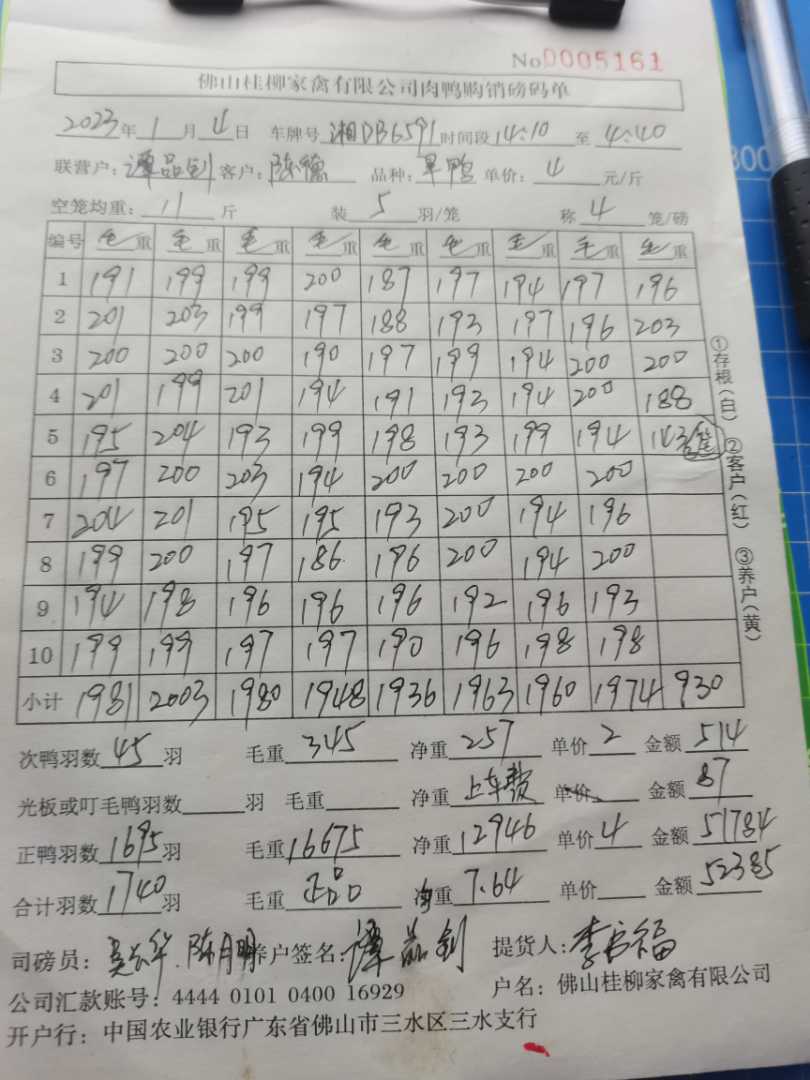 No 0005161
佛山桂柳家禽有限公司肉鸭购销磅码单
2023年 1 月 4 日 车牌号 湘DB6591 时间段 14:10 至 4:40
联营户: 谭品剑 客户: 陈德 品种: 旱鸭 单价: 4 元/斤
空笼均重: 11 斤 装 5 羽/笼 称 4 笼/磅
编号 毛重 毛重 毛重 毛重 毛重 毛重 毛重 毛重 毛重
1 191 199 199 200 187 197 194 197 196
2 201 203 199 197 188 193 197 196 203
3 200 200 200 190 197 199 194 200 200
4 201 199 201 194 191 193 194 200 188
5 195 204 193 199 198 193 199 194 143
6 197 200 203 194 200 200 200 200
7 204 201 195 195 193 200 194 196
8 199 200 197 186 196 200 194 200
9 194 198 196 196 196 192 196 193
10 199 199 197 197 190 196 198 198
小计 1981 2003 1980 1948 1936 1963 1960 1974 930
①存根(白) ②客户(红) ③养户(黄)
次鸭羽数 45 羽 毛重 345 净重 257 单价 2 金额 514
光板或叮毛鸭羽数 羽 毛重 净重 上车费 单价 金额 87
正鸭羽数 1695 羽 毛重 16675 净重 12946 单价 4 金额 51784
合计羽数 1740 羽 毛重 正品 净重 7.64 单价 金额 52385
司磅员: 陈月明 养户签名: 谭品剑 提货人: 李福
公司汇款账号: 4444 0101 0400 16929 户名: 佛山桂柳家禽有限公司
开户行: 中国农业银行广东省佛山市三水区三水支行